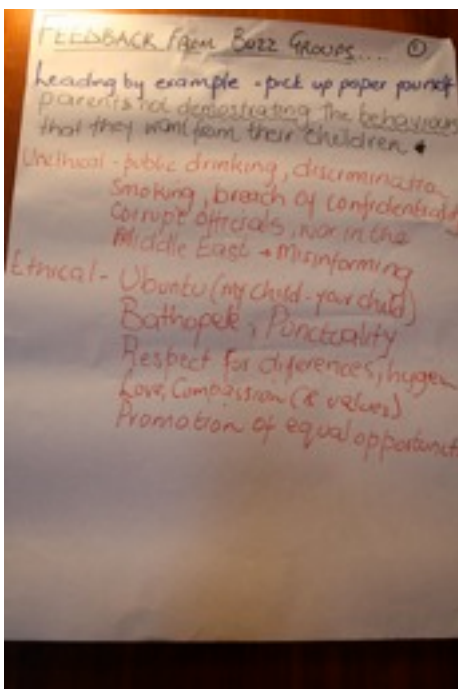 FEEDBACK FROM BUZZ GROUPS....
Leading by example - pick up paper yourself
parents not demostrating the behaviours
that they want from their children.
Unethical - public drinking, discriminatio
Smoking, breach of confidentiality
Corrupt officials, war in the
Middle East → Misinforming
Ethical - Ubuntu (my child - your child)
Bathopele, Punctuality
Respect for diferences, hygen
Love, Compassion (& values)
Promotion of equal opportunit